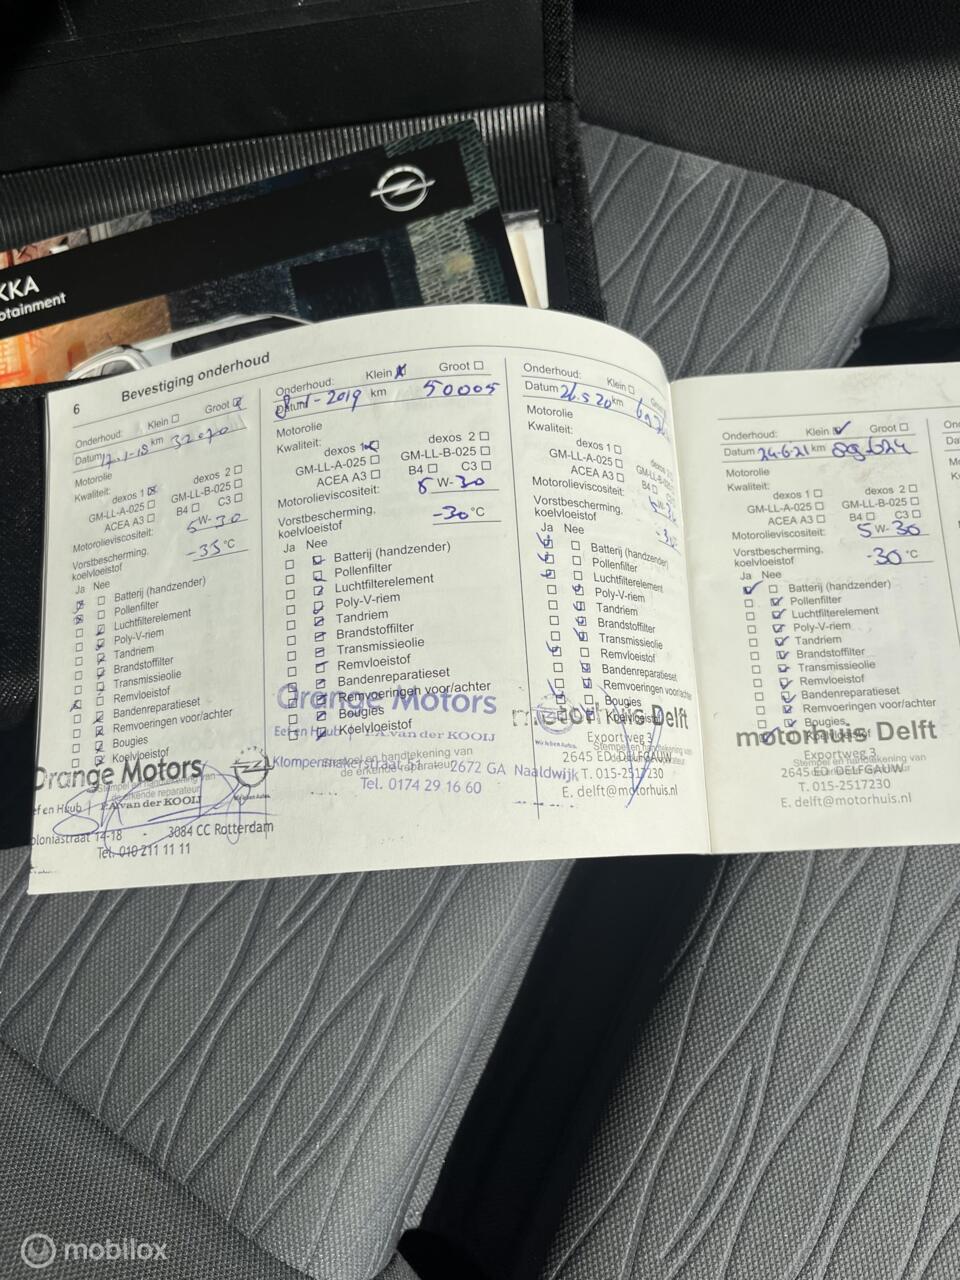 KKA
otainment
6 Bevestiging onderhoud
Onderhoud: Klein ☐ Groot ☒
Datum 12-1-18 km 32070
Motorolie
Kwaliteit:
dexos 1 ☒ dexos 2 ☐
GM-LL-A-025 ☐ GM-LL-B-025 ☐
ACEA A3 ☐ B4 ☐ C3 ☐
Motorolieviscositeit: 5 W- 30
Vorstbescherming,
koelvloeistof -35 °C
Ja Nee
Batterij (handzender)
Pollenfilter
Luchtfilterelement
Poly-V-riem
Tandriem
Brandstoffilter
Transmissieolie
Remvloeistof
Bandenreparatieset
Remvoeringen voor/achter
Bougies
Koelvloeistof
Orange Motors
Stempel en handtekening van
de erkende reparateur
Eef en Huub P.A. van der KOOIJ
oloniastraat 14-18 - 3084 CC Rotterdam
Tel. 010 211 11 11
Onderhoud: Klein ☒ Groot ☐
Datum 8-1-2019 km 50005
Motorolie
Kwaliteit:
dexos 1 ☒ dexos 2 ☐
GM-LL-A-025 ☐ GM-LL-B-025 ☐
ACEA A3 ☐ B4 ☐ C3 ☐
Motorolieviscositeit: 5 W- 30
Vorstbescherming,
koelvloeistof -30 °C
Ja Nee
Batterij (handzender)
Pollenfilter
Luchtfilterelement
Poly-V-riem
Tandriem
Brandstoffilter
Transmissieolie
Remvloeistof
Bandenreparatieset
Remvoeringen voor/achter
Bougies
Koelvloeistof
Orange Motors
Eef en Huub P.A. van der KOOIJ
Stempel en handtekening van
de erkende reparateur
Klompenmakerstraat 51 2672 GA Naaldwijk
Tel. 0174 29 16 60
Onderhoud: Klein ☐
Datum 26.5.20 km
Motorolie
Kwaliteit:
dexos 1 ☐
GM-LL-A-025 ☐
ACEA A3 ☐ B4 ☐
Motorolieviscositeit: 5 W-
Vorstbescherming,
koelvloeistof
Ja Nee
Batterij (handzender)
Pollenfilter
Luchtfilterelement
Poly-V-riem
Tandriem
Brandstoffilter
Transmissieolie
Remvloeistof
Bandenreparatieset
Remvoeringen voor/achter
Bougies
Koelvloeistof
motorhuis Delft
Exportweg 3
2645 ED DELFGAUW
T. 015-2517230
E. delft@motorhuis.nl
Onderhoud: Klein ☑ Groot ☐
Datum 24-6-21 km
Motorolie
Kwaliteit:
dexos 1 ☐ dexos 2 ☐
GM-LL-A-025 ☐ GM-LL-B-025 ☐
ACEA A3 ☐ B4 ☐ C3 ☐
Motorolieviscositeit: 5 W- 30
Vorstbescherming,
koelvloeistof -30 °C
Ja Nee
Batterij (handzender)
Pollenfilter
Luchtfilterelement
Poly-V-riem
Tandriem
Brandstoffilter
Transmissieolie
Remvloeistof
Bandenreparatieset
Remvoeringen voor/achter
Bougies
Koelvloeistof
motorhuis Delft
Exportweg 3
Stempel en handtekening van
2645 ED DELFGAUW
T. 015-2517230
E. delft@motorhuis.nl
mobilox